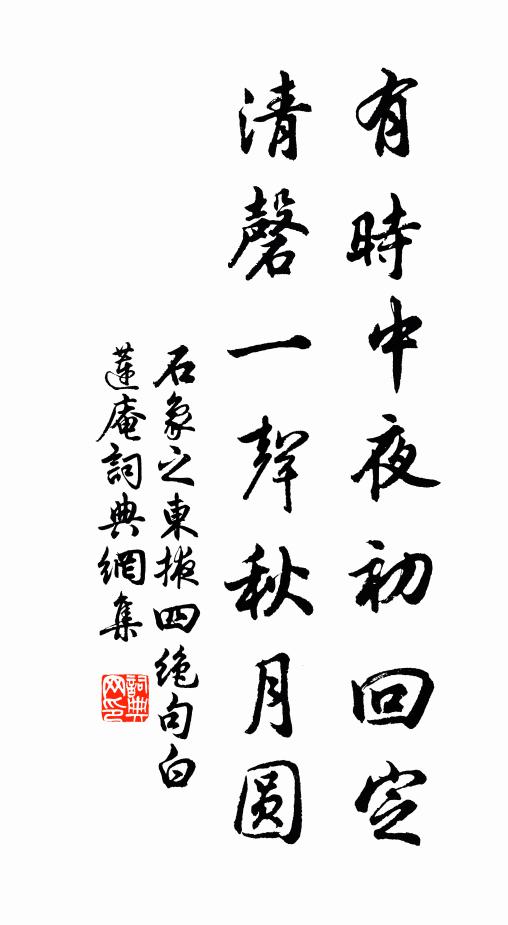 有時中夜初回定
清磬一聲秋月圓
石象之東掖四絶句白
蓮庵詞典網集
詞典网印